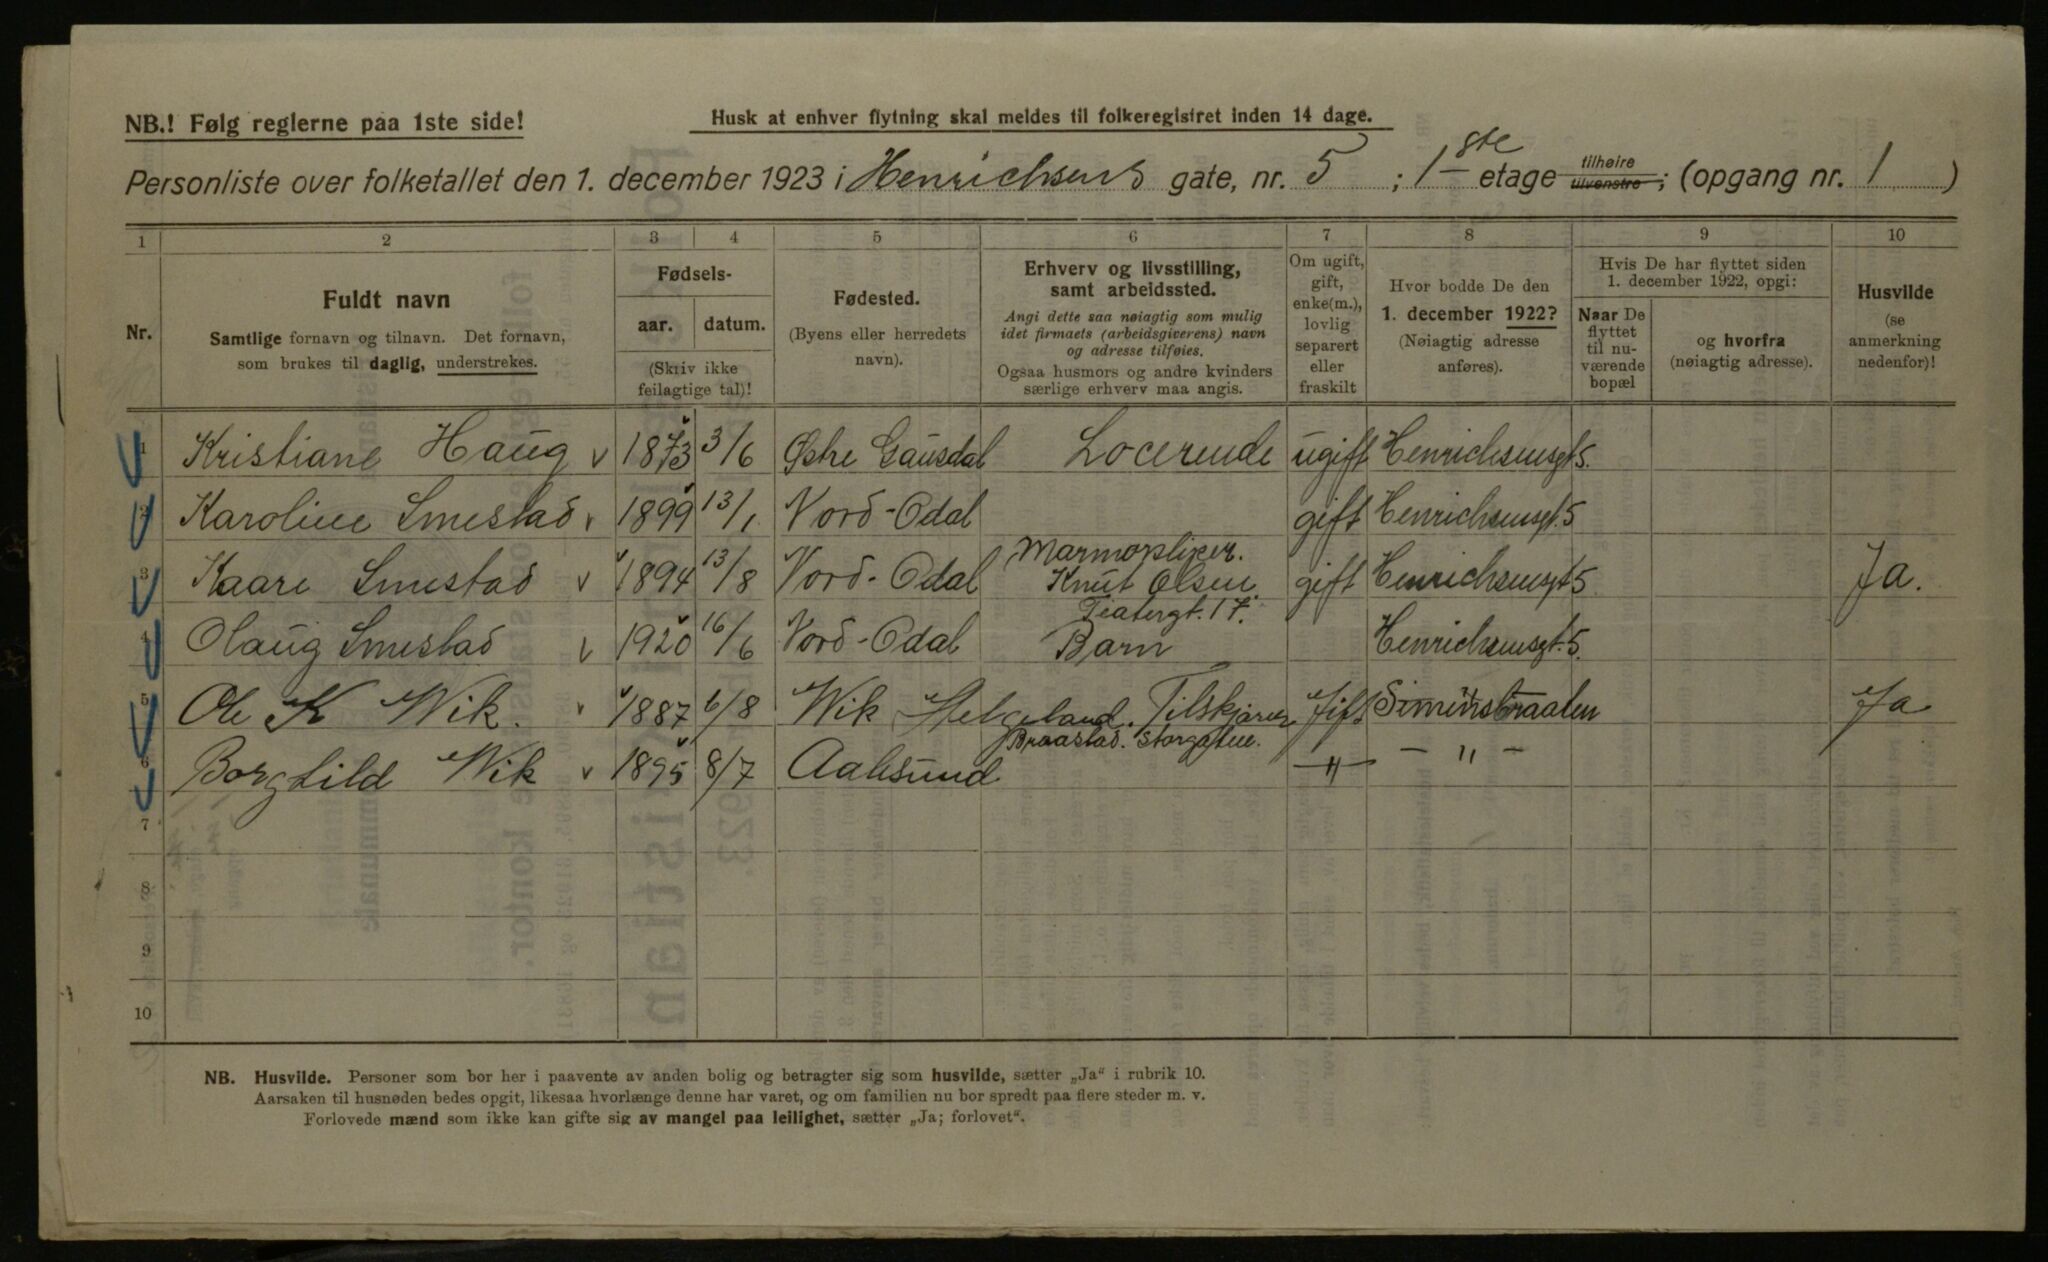 NB.! Følg reglerne paa 1ste side!
Husk at enhver flytning skal meldes til folkeregistret inden 14 dage.
Personliste over folketallet den 1. december 1923 i Henrichsens gate, nr. 5; 1ste etage tilhøire tilvenstre; (opgang nr. 1)
1 2 3 4 5 6 7 8 9 10
Nr.
Fuldt navn
Samtlige fornavn og tilnavn. Det fornavn,
som brukes til daglig, understrekes.
Fødsels-
aar. datum.
(Skriv ikke
feilagtige tal)!
Fødested.
(Byens eller herredets
navn).
Erhverv og livsstilling,
samt arbeidssted.
Angi dette saa nøiagtig som mulig
idet firmaets (arbeidsgiverens) navn
og adresse tilføies.
Ogsaa husmors og andre kvinders
særlige erhverv maa angis.
Om ugift,
gift,
enke(m.),
lovlig
separert
eller
fraskilt
Hvor bodde De den
1. december 1922?
(Nøiagtig adresse
anføres).
Hvis De har flyttet siden
1. december 1922, opgi:
Naar De
flyttet
til nu-
værende
bopæl
og hvorfra
(nøiagtig adresse).
Husvilde
(se
anmerkning
nedenfor)!
1 Kristiane Haug 1873 3/6 Østre Gausdal Locerende ugift Henrichsensgt 5.
2 Karoline Smestad 1899 13/1 Nord-Odal gift Henrichsensgt. 5
3 Kaare Smestad 1894 13/8 Nord-Odal Marmorsliper. Knut Olsen. Teatergt. 17. gift Henrichsensgt 5 Ja.
4 Olaug Smestad 1920 16/6 Nord-Odal Barn Henrichsensgt. 5.
5 Ole K Wik. 1887 6/8 Wik Helgeland. Tilskjærer Braastad. Storgaten. Gift Ja
6 Borghild Wik 1895 8/7 Aalesund -"- - " -
7
8
9
10
NB. Husvilde. Personer som bor her i paavente av anden bolig og betragter sig som husvilde, sætter „Ja“ i rubrik 10.
Aarsaken til husnøden bedes opgit, likesaa hvorlænge denne har varet, og om familien nu bor spredt paa flere steder m. v.
Forlovede mænd som ikke kan gifte sig av mangel paa leilighet, sætter „Ja; forlovet“.